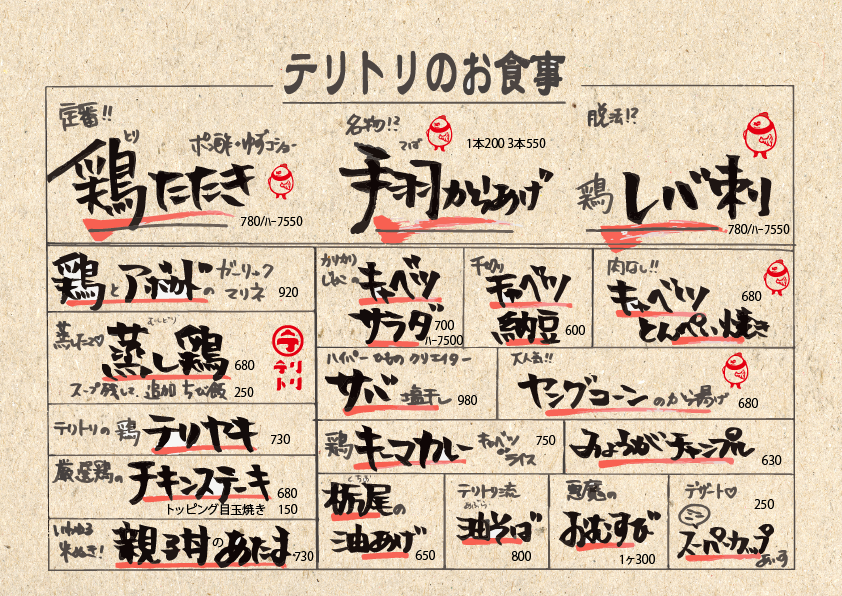 テリトリのお食事
定番!!
鶏たたき
とり
ポン酢・ゆずコショー
780/ﾊｰﾌ550
名物!?
1本200 3本550
てば
手羽からあげ
脱法!?
鶏レバ刺り
780/ﾊｰﾌ550
鶏とアボカドのガーリックマリネ
920
かりかりじゃこの
キャベツサラダ
700
ﾊｰﾌ500
千切り
キャベツ納豆
600
肉なし!!
キャベツとんぺい焼き
680
蒸したて♡
むしどり
蒸し鶏
680
スープ残して、追加 ちび飯 250
テリトリ
ハイパーひもの クリエイター
サバ塩干し
980
大人気!!
ヤングコーンのから揚げ
680
テリトリの鶏テリヤキ
730
鶏キーマカレー
キャベツorライス
750
みょうがチャンプル
630
厳選鶏の
チキンステーキ
680
トッピング目玉焼き 150
いわゆる米ぬき!
親子丼のあたま
730
とちお
栃尾の油あげ
650
テリトリ流
あぶら
油そば
800
悪魔の
おむすび
1ヶ300
デザート♡
250
スーパーカップ
あいす